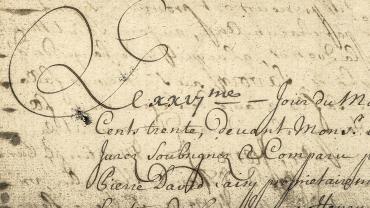 Le xxvj.me – Jour du M
Cents trente, devant Mons.r
Juree Soubsigner Ce Comparu p
Pierre David propriétaire m